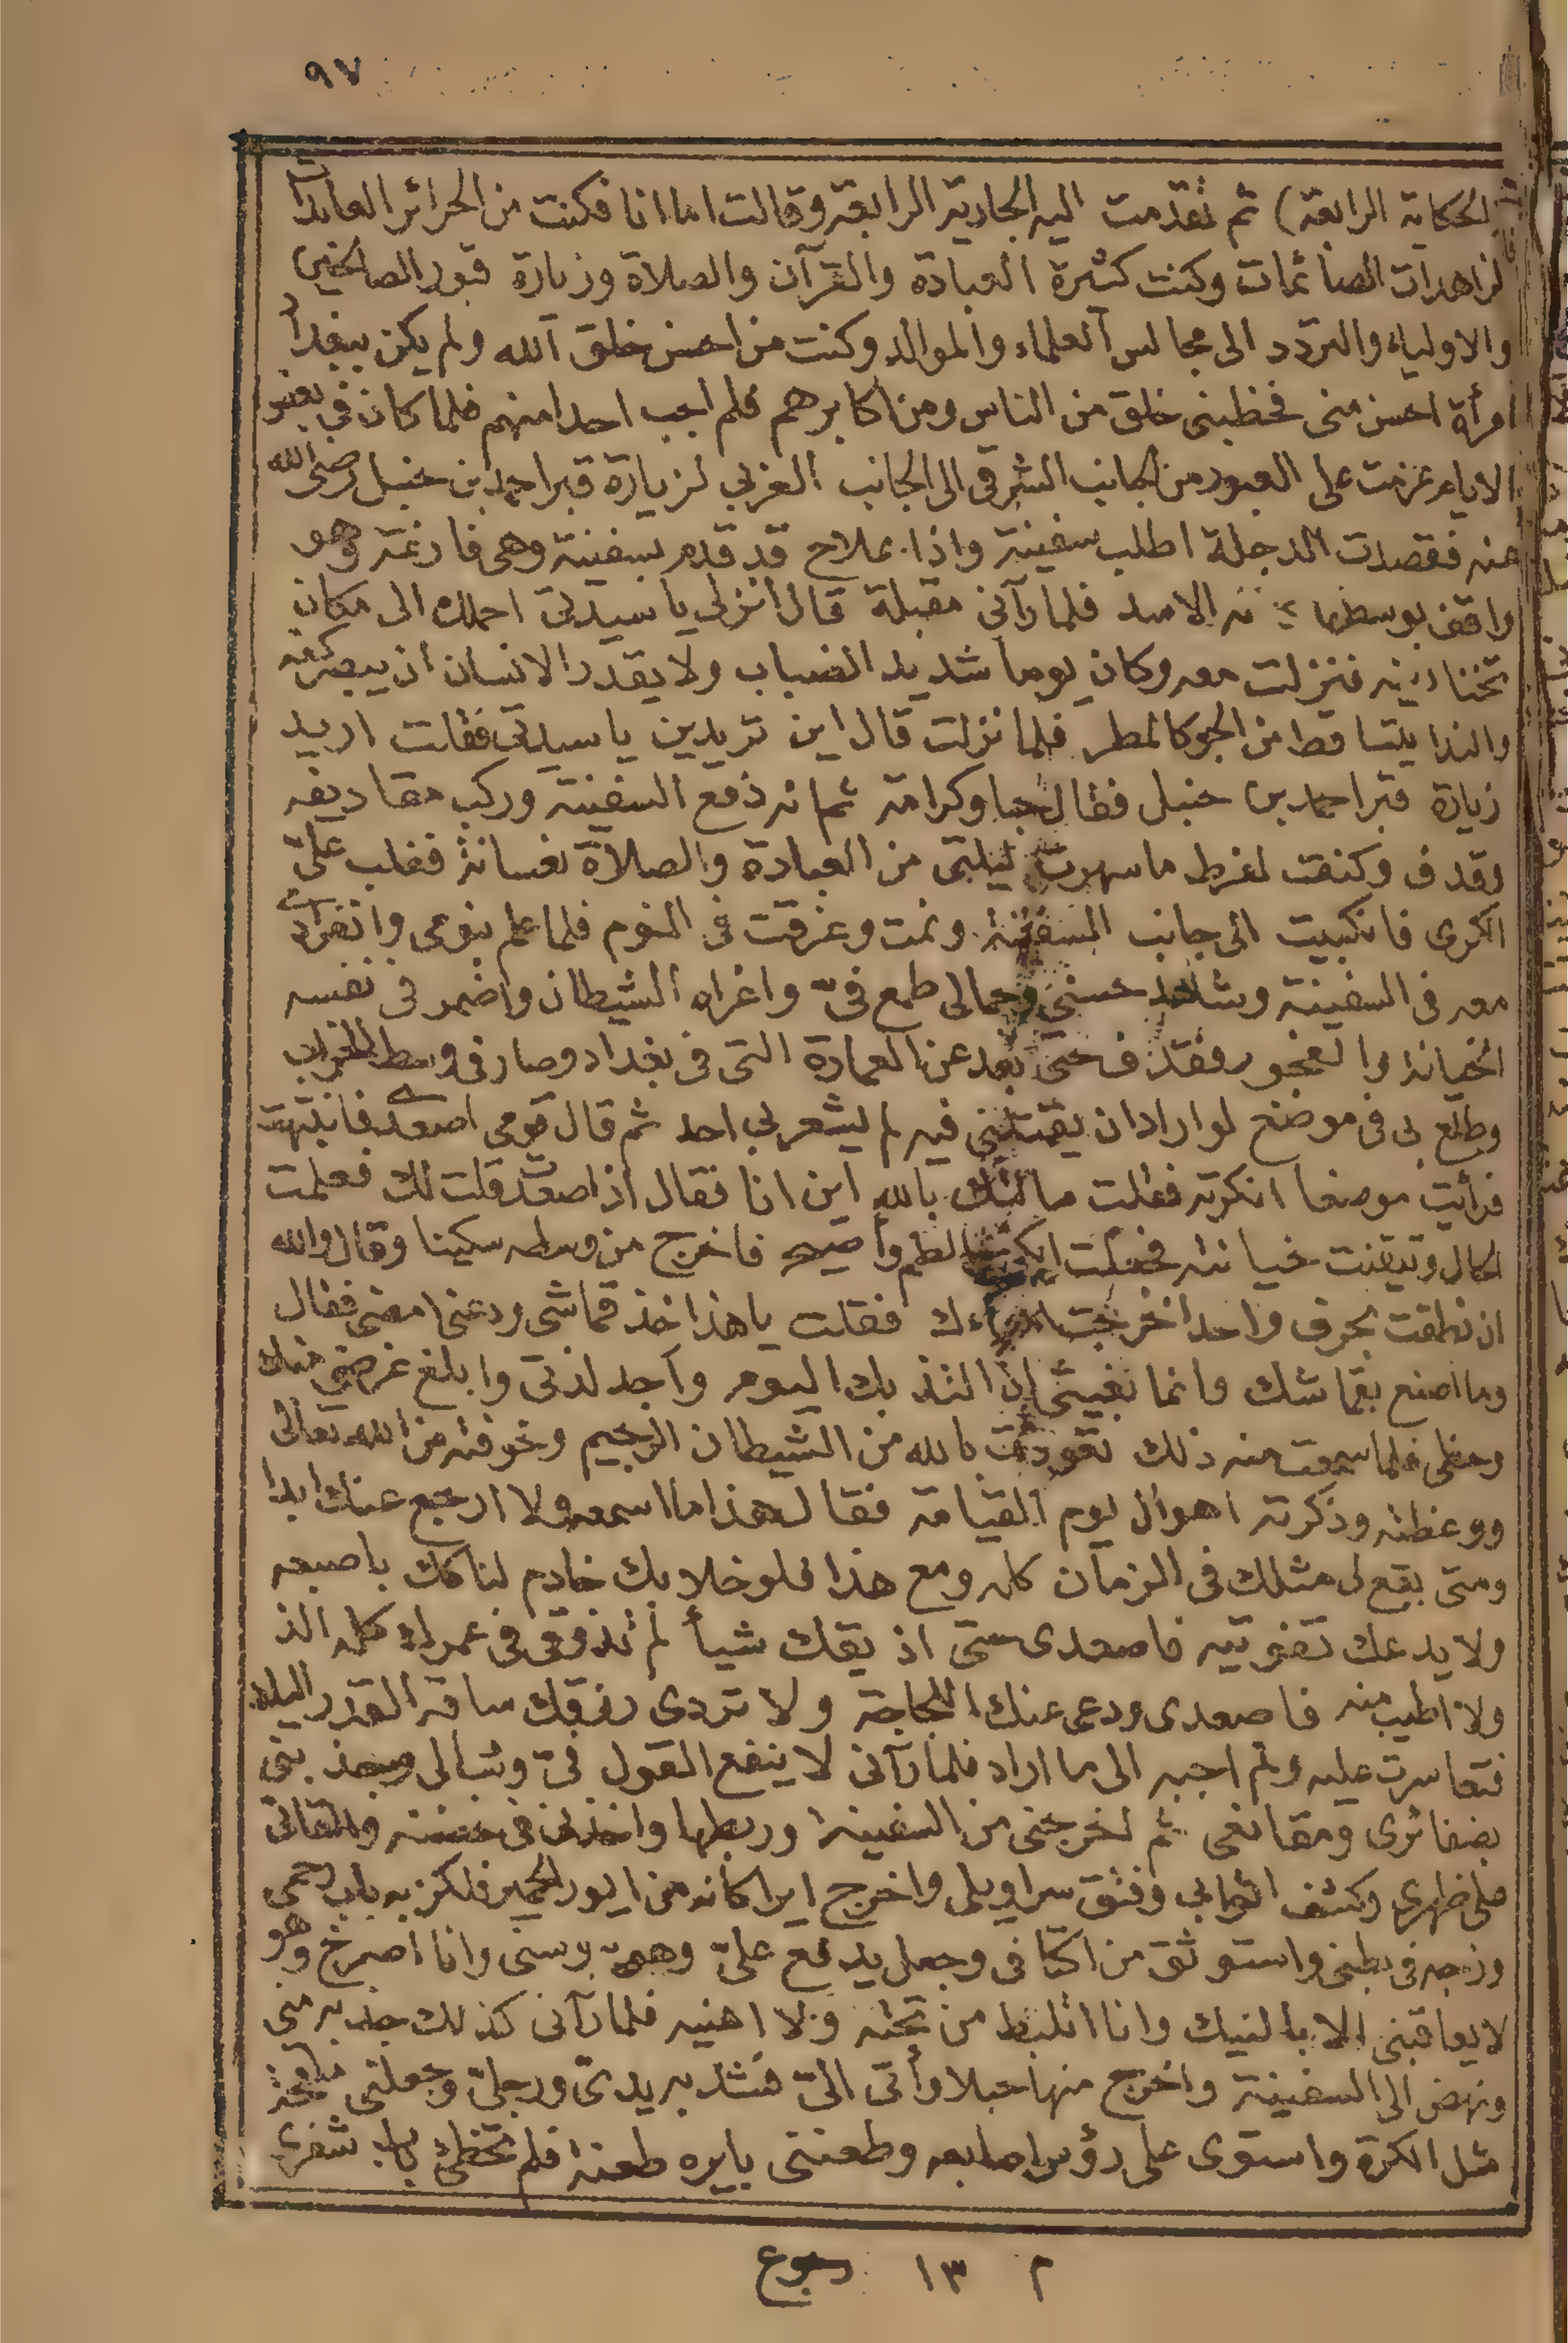 ٩٧
(الحكاية الرابعة) ثم تقدمت اليه الجارية الرابعة وقالت اما انا فكنت من الحرائر العابدات
الزاهدات الصائمات وكنت كثيرة العبادة والقرآن والصلاة وزيارة قبور الصالحين
والاولياء والتردد الى مجالس العلماء والموالد وكنت من احسن خلق الله ولم يكن ببغداد
امرأة احسن منى فخطبنى خلق من الناس ومن اكابرهم فلم اجب احدا منهم فلما كان فى بعض
الايام عزمت على العبور من الجانب الشرقى الى الجانب الغربى لزيارة قبر احمد بن حنبل رضى الله
عنه فقصدت الدجلة اطلب سفينة واذا بملاح قد قدم بسفينة وهى فارغة وهو
واقف بوسطها الاسد فلما رآنى مقبلة قال انزلى يا سيدتى احملك الى مكان
تختارينه فنزلت معه وكان يوما شديد الضباب ولا يقدر الانسان ان يبصر كفه
والندا يتساقط من الجو كالمطر فلما نزلت قال اين تريدين يا سيدتى فقلت اريد
زيارة قبر احمد بن حنبل فقال حبا وكرامة ثم انه دفع السفينة وركب مقاديفه
وقدف وكنت لفرط ما سهرت ليلتى من العبادة والصلاة نعسانة فغلب علىّ
الكرى فانكبيت الى جانب السفينة ونمت وغرقت فى النوم فلما علم بنومى وانفرادى
معه فى السفينة وشاهد حسنى وجمالى طمع فىّ واغراه الشيطان واضمر فى نفسه
الخيانة والفجور فقذف حتى بعد عن العمارة التى فى بغداد وصار فى وسط الخراب
وطلع بى فى موضع لو اراد ان يقتلنى فيه لم يشعر بى احد ثم قال قومى اصعدى فانتبهت
فرأيت موضعا انكرته فقلت سألتك بالله اين انا فقال اذا صعدت قلت لك فعلمت
الحال وتيقنت خيانته فجعلت ابكى والطم واصيح فاخرج من وسطه سكينا وقال والله
ان نطقت بحرف واحد اخرجت امعاءك فقلت يا هذا خذ قماشى ودعنى امضى فقال
وما اصنع بقماشك وانما بغيتى ان التذ بك اليوم واجد لذتى وابلغ غرضى منك
وحظى فلما سمعت منه ذلك تعوذت بالله من الشيطان الرجيم وخوفته من الله تعالى
ووعظته وذكرته اهوال يوم القيامة فقال هذا ما اسمعه ولا ارجع عنك ابدا
ومتى يقع لى مثلك فى الزمان كله ومع هذا فلو خلا بك خادم لناكك باصبعه
ولا يدعك تفوتيه فاصعدى حتى اذيقك شيأ لم تذوقى فى عمرك كله الذ
ولا اطيب منه فاصعدى ودعى عنك اللجاجة ولا تردى رزقك ساقه القدر اليك
فتعاسرت عليه ولم اجبه الى ما اراد فلما رآنى لا ينفع القول فىّ وثب الى وجذبنى
بضفائرى ومقانعى ثم اخرجنى من السفينة وربطها واخذنى فى حضنه والقانى
على ظهرى وكشف اثوابى وفتق سراويلى واخرج ايرا كأنه من ايور الحمير فلكز به باب رحمى
وزجه فى بطنى واستوثق من اكتافى وجعل يدفع علىّ وهو يبوسنى وانا اصرخ وهو
لا يعاقبنى الا بالنيك وانا اتلبط من تحته ولا اهنيه فلما رآنى كذلك جذبه منى
ونهض الى السفينة واخرج منها حبلا وأتى الىّ فشد به يدىّ ورجلىّ وجعلنى
مثل الكرة واستوى على رؤس اصابعه وطعننى بايره طعنة فلم تخطئ باب شفرى
م ١٣ رجوع